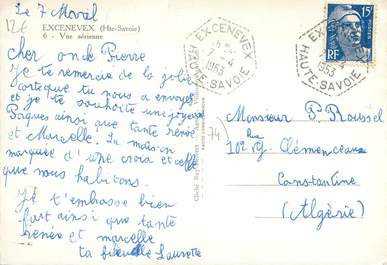 Le 7 Avril
12€
EXCENEVEX (Hte-Savoie)
6 - Vue aérienne
Cher oncle Pierre
Je te remercie de la jolie
carte que tu nous a envoyé
et je te souhaite une joyeuse
Pâques ainsi que tante renée
et Marcelle. La maison
marquée d'une croix est celle
que nous habitons.
Je t'embrasse bien
fort ainsi que tante
renée et marcelle
ta filleulle Laurette
EXCENEVEX
-4
1953
HAUTE-SAVOIE
EXCENEVEX
-4
1953
HAUTE-SAVOIE
15F
POSTES
RF
74
Monsieur P. Roussel
102 Rue Clémenceau
Constantine
(Algérie)